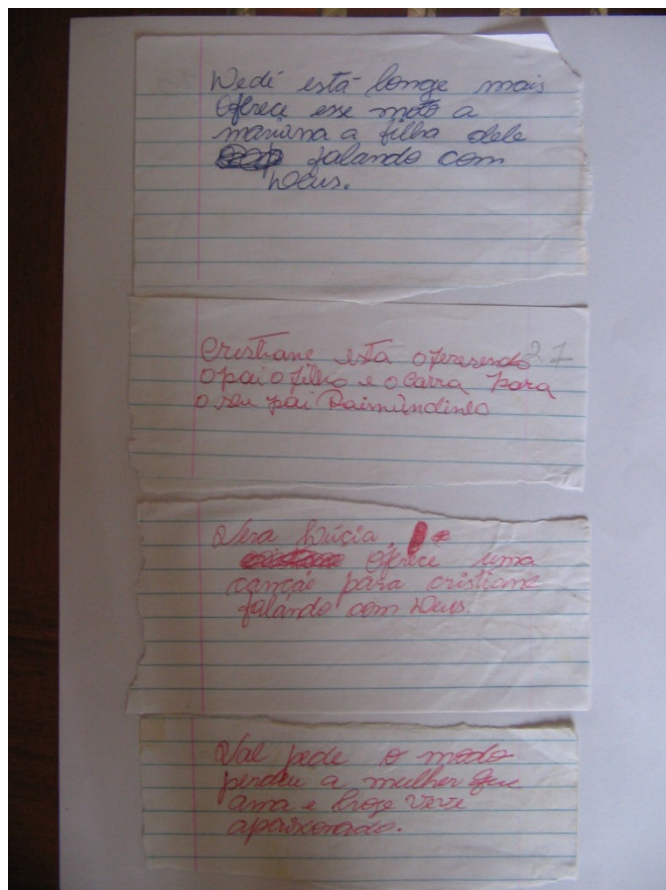 Wedé está longe mais
Oferece esse moto a
mariana a filha dele
falando com
Deus.
Cristiane esta oferesendo 27
o pai o filho e o carra para
o seu pai Raimundinho
Vera Lúcia
oferece uma
canção para cristiane
falando com Deus.
Val pede o modo
perdeu a mulher que
ama e hoge vive
apaixonado.